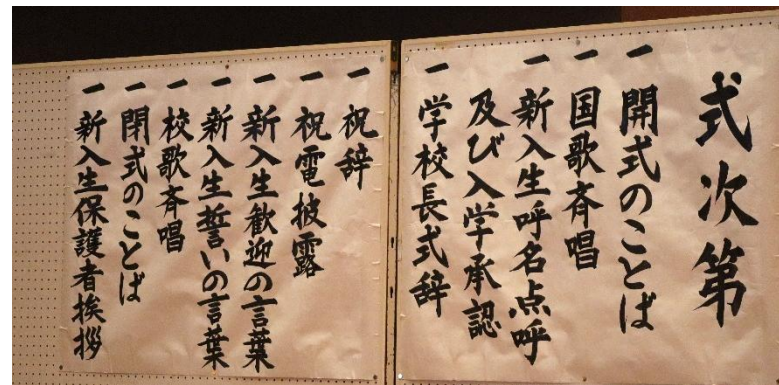 式次第
一 開式のことば
一 国歌斉唱
一 新入生呼名点呼
及び入学承認
一 学校長式辞
一 祝辞
一 祝電披露
一 新入生歓迎の言葉
一 新入生誓いの言葉
一 校歌斉唱
一 閉式のことば
一 新入生保護者挨拶